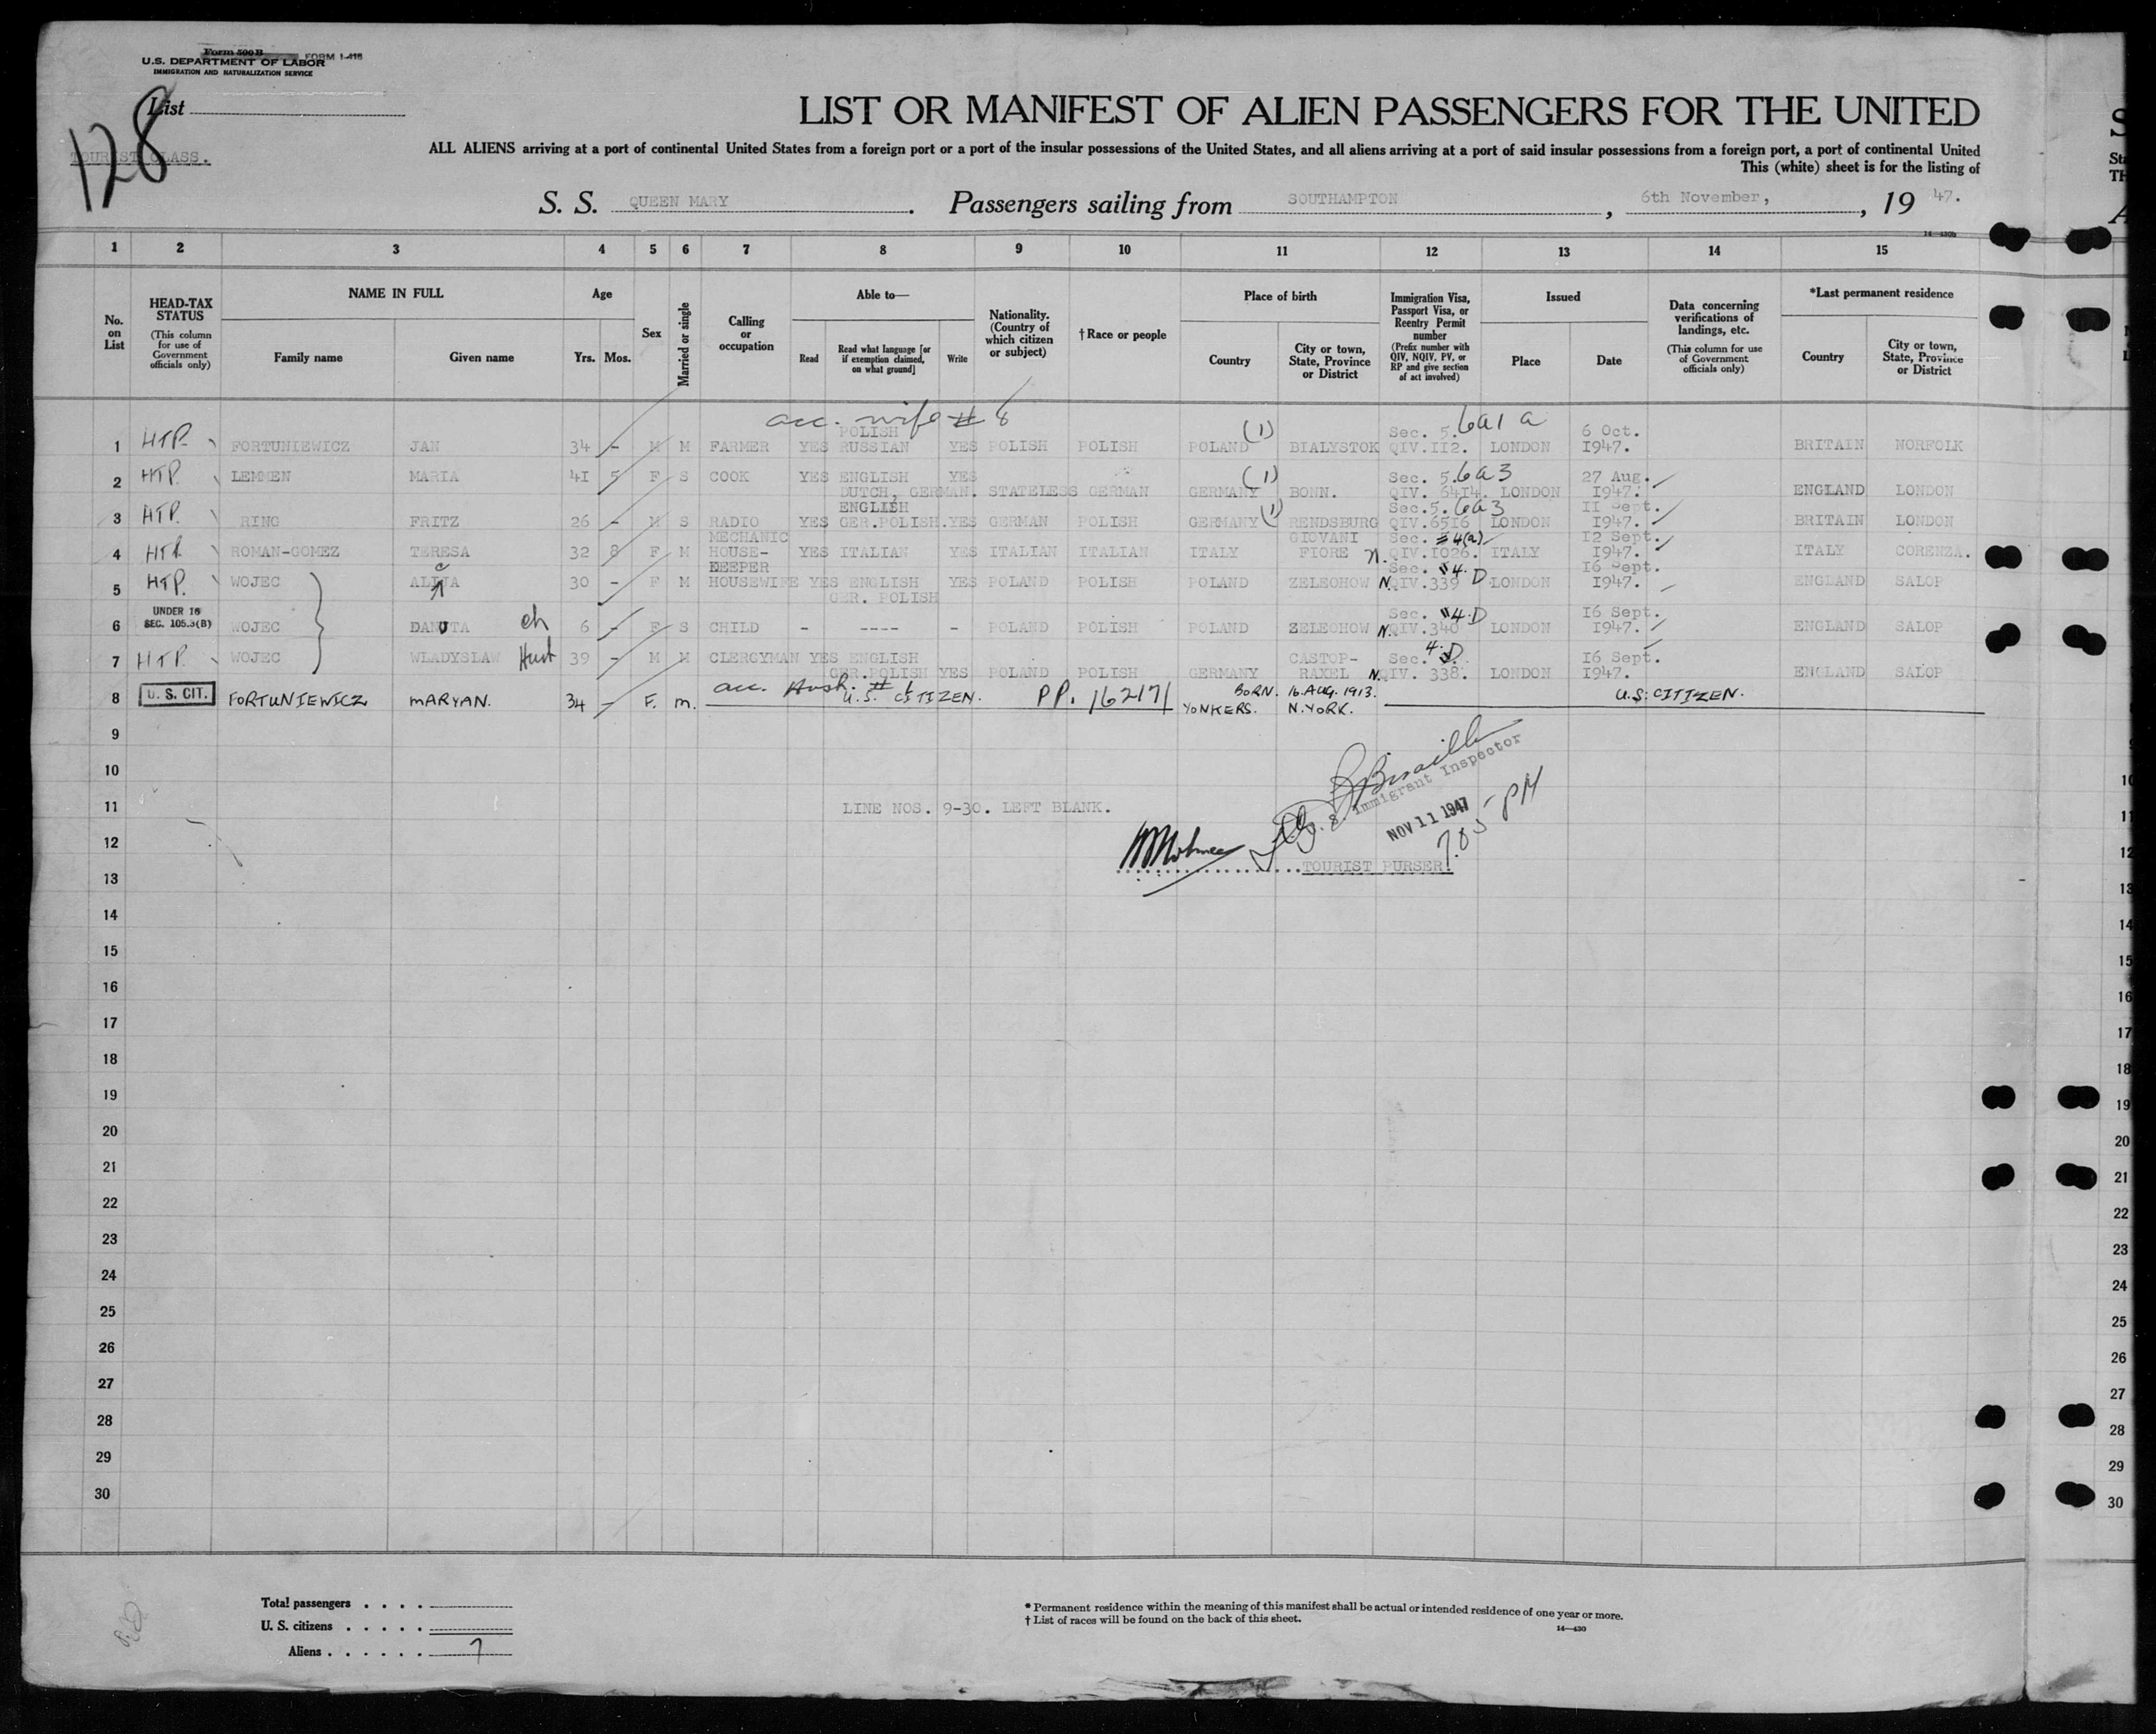 Form 500B FORM I-415
U.S. DEPARTMENT OF LABOR
IMMIGRATION AND NATURALIZATION SERVICE
List
128
TOURIST CLASS.
LIST OR MANIFEST OF ALIEN PASSENGERS FOR THE UNITED
ALL ALIENS arriving at a port of continental United States from a foreign port or a port of the insular possessions of the United States, and all aliens arriving at a port of said insular possessions from a foreign port, a port of continental United
This (white) sheet is for the listing of
S. S. QUEEN MARY. Passengers sailing from SOUTHAMPTON, 6th November, , 19 47.
14—430b
1 2 3 4 5 6 7 8 9 10 11 12 13 14 15
No. on List
HEAD-TAX STATUS (This column for use of Government officials only)
NAME IN FULL Family name Given name
Age Yrs. Mos.
Sex
Married or single
Calling or occupation
Able to— Read Read what language [or if exemption claimed, on what ground] Write
Nationality. (Country of which citizen or subject)
†Race or people
Place of birth Country City or town, State, Province or District
Immigration Visa, Passport Visa, or Reentry Permit number (Prefix number with QIV, NQIV, PV, or RP and give section of act involved)
Issued Place Date
Data concerning verifications of landings, etc. (This column for use of Government officials only)
*Last permanent residence Country City or town, State, Province or District
acc. wife # 8
POLISH (1) Sec. 5. 6a1a 6 Oct.
1 HTP FORTUNIEWICZ JAN 34 - M M FARMER YES RUSSIAN YES POLISH POLISH POLAND BIALYSTOK QIV.112. LONDON 1947. BRITAIN NORFOLK
2 HTP. LEMMEN MARIA 41 5 F S COOK YES ENGLISH YES (1) Sec. 5. 6a3 27 Aug.
DUTCH, GERMAN. STATELESS GERMAN GERMANY BONN. QIV. 6414. LONDON 1947. ENGLAND LONDON
ENGLISH (1) Sec.5. 6a3 11 Sept.
3 HTP. RING FRITZ 26 - M S RADIO YES GER.POLISH. YES GERMAN POLISH GERMANY RENDSBURG QIV.6516 LONDON 1947. BRITAIN LONDON
MECHANIC GIOVANI Sec. 4(a) 12 Sept.
4 HTP ROMAN-GOMEZ TERESA 32 8 F M HOUSE- YES ITALIAN YES ITALIAN ITALIAN ITALY FIORE N. QIV.1026. ITALY 1947. ITALY CORENZA.
KEEPER Sec. 4. D 16 Sept.
5 HTP. WOJEC ALINA 30 - F M HOUSEWIFE YES ENGLISH YES POLAND POLISH POLAND ZELEOHOW N.QIV.339 LONDON 1947. ENGLAND SALOP
GER. POLISH
UNDER 16 Sec. 4.D 16 Sept.
6 SEC. 105.3(B) WOJEC DANUTA ch 6 - F S CHILD - ---- - POLAND POLISH POLAND ZELEOHOW N.QIV.340 LONDON 1947. ENGLAND SALOP
7 HTP. WOJEC WLADYSLAW Husb 39 - M M CLERGYMAN YES ENGLISH CASTOP- Sec. 4.D 16 Sept.
GER.POLISH YES POLAND POLISH GERMANY RAXEL N.QIV. 338. LONDON 1947. ENGLAND SALOP
acc. Husb. # 1
8 U. S. CIT. FORTUNIEWICZ MARYAN. 34 - F. M. U.S. CITIZEN. PP. 16217 BORN. 16.AUG.1913. U.S. CITIZEN.
YONKERS. N.YORK.
9
10
11 LINE NOS. 9-30. LEFT BLANK.
U. S. Immigrant Inspector
NOV 11 1947
7.05 PM
12
TOURIST PURSER.
13
14
15
16
17
18
19
20
21
22
23
24
25
26
27
28
29
30
Total passengers . . . .
U. S. citizens . . . . .
Aliens . . . . . . 7
* Permanent residence within the meaning of this manifest shall be actual or intended residence of one year or more.
† List of races will be found on the back of this sheet.
14—430
10
11
12
13
14
15
16
17
18
19
20
21
22
23
24
25
26
27
28
29
30